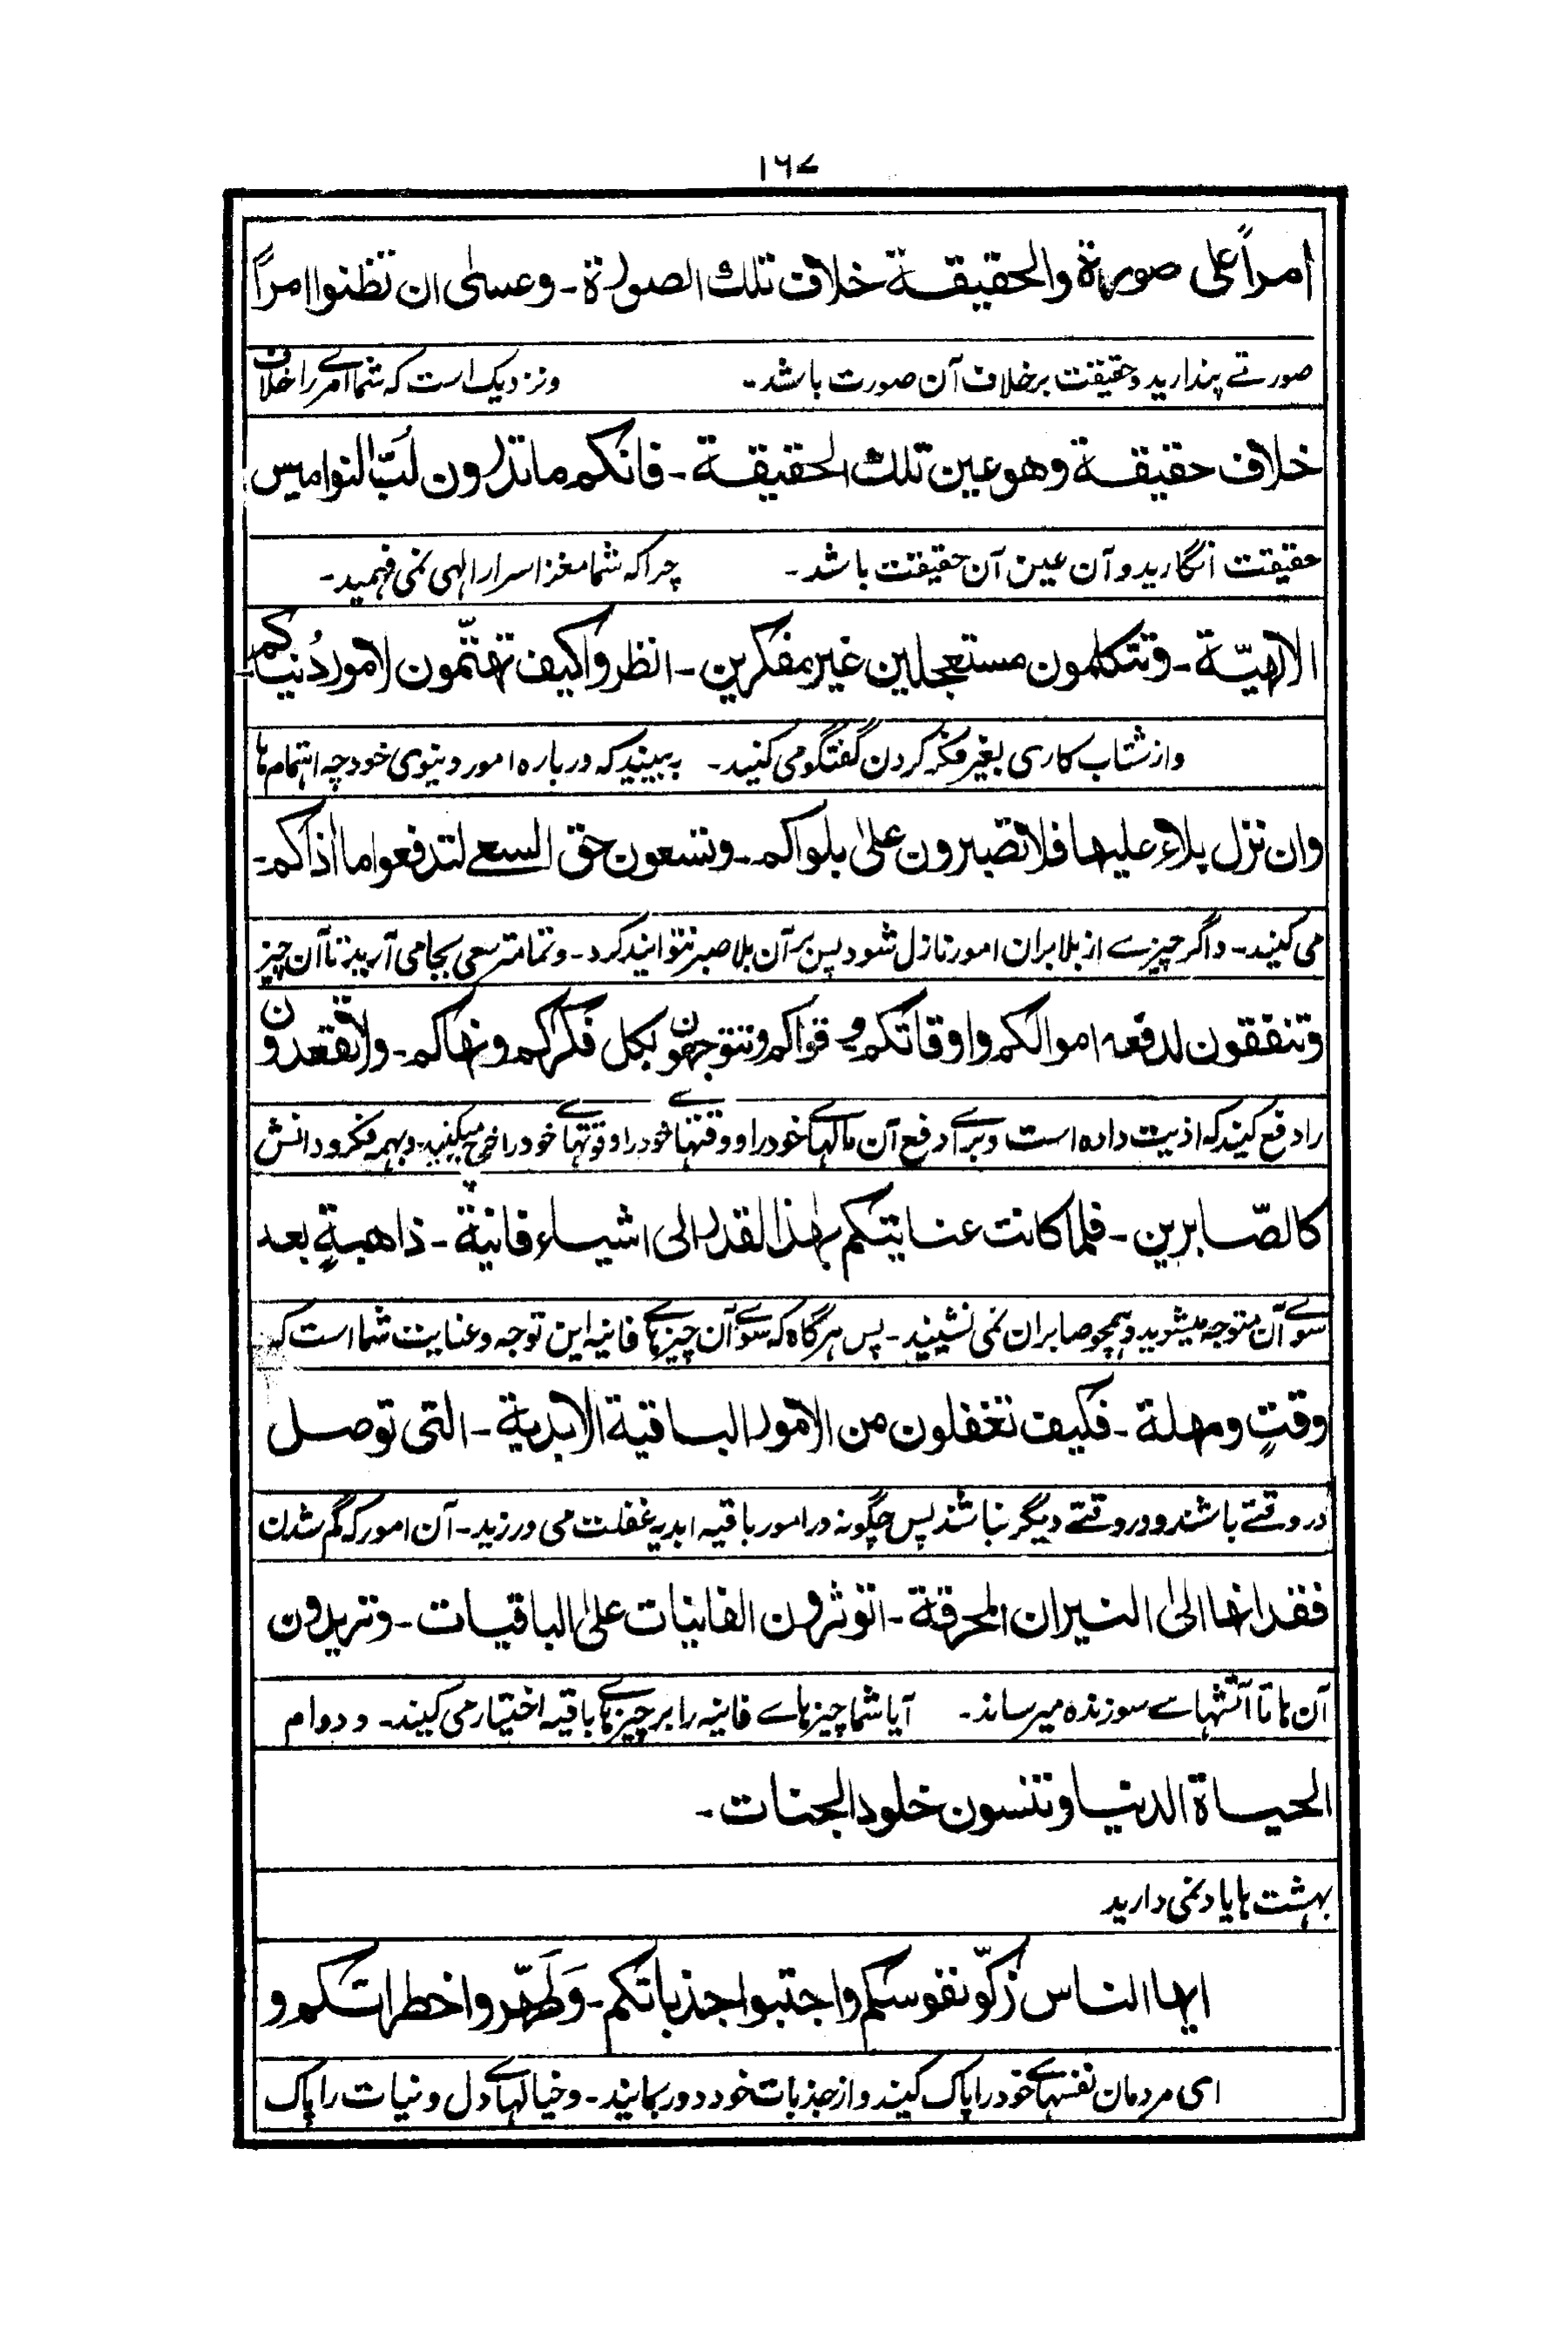 ۱۶۷
امراً علی صورة والحقیقة خلاف تلك الصورة۔ وعسىٰ ان تظنوا امراً
صورتے پندارید و حقیقت برخلاف آن صورت باشد۔ ونزدیک است کہ شما امرے را خلاف
خلاف حقیقة وهو عین تلك الحقیقة۔ فانكم ما تدرون لُبّ النوامیس
حقیقت انگارید و آن عین آن حقیقت باشد۔ چراکہ شما مغز اسرار الہی نمی فہمید۔
الالٰهیّة۔ وتتكلمون مستعجلین غیر مفكرین۔ انظروا كیف تهتمّون لامور دُنیاكم
واز شتاب کاری بغیر فکر کردن گفتگو می کنید۔ بہ بینید کہ دربارہ امور دنیوی خود چہ اہتمام ہا
وان نزل بلاء علیها فلا تصبرون علیٰ بلواكم۔ وتسعون حق السعے لتدفعوا ما اٰذاكم۔
می کنید۔ واگر چیزے از بلا بران امور نازل شود پس برآن بلا صبر نتوانید کرد۔ و تمامتر سعی بجا می آرید تا آن چیز
وتنفقون لدفعه اموالكم واوقاتكم و قواكم وتتوجهون بكل فكركم ونهاكم۔ ولا تقعدون
را دفع کنید کہ اذیت دادہ است وبرائے دفع آن مالہائے خود را و وقتہائے خود را و قوتہائے خود را خرچ میکنید۔ وبہمہ فکر و دانش
كالصّابرین۔ فلما كانت عنایتكم بهذا القدر الی اشیاء فانیة۔ ذاهبةٍ بعد
سوئے آن متوجہ میشوید و ہمچو صابران نمی نشینید۔ پس ہرگاہ کہ سوئے آن چیزہائے فانیہ این توجہ و عنایت شما است کہ
وقتٍ ومهلة۔ فكیف تغفلون من الامور الباقیة الابدیة۔ التی توصل
در وقتے باشند و در وقتے دیگر نباشند پس چگونہ در امور باقیہ ابدیہ غفلت می ورزید۔ آن امور کہ گم شدن
فقدانها الیٰ النیران المحرقة۔ اتوثرون الفانیات علیٰ الباقیات۔ وتریدون
آن ہا تا آتشہائے سوزندہ میرساند۔ آیا شما چیزہائے فانیہ را بر چیزہائے باقیہ اختیار می کیند۔ و دوام
الحیاة الدنیا وتنسون خلود الجنات۔
بہشت ہا یاد نمی دارید
ایها الناس زكّو نفوسكم واجتنبوا جذباتكم۔ وَطَهّروا خطراتكم و
ای مردمان نفسہائے خود را پاک کیند و از جذبات خود دور بمانید۔ و خیالہائے دل و نیات را پاک